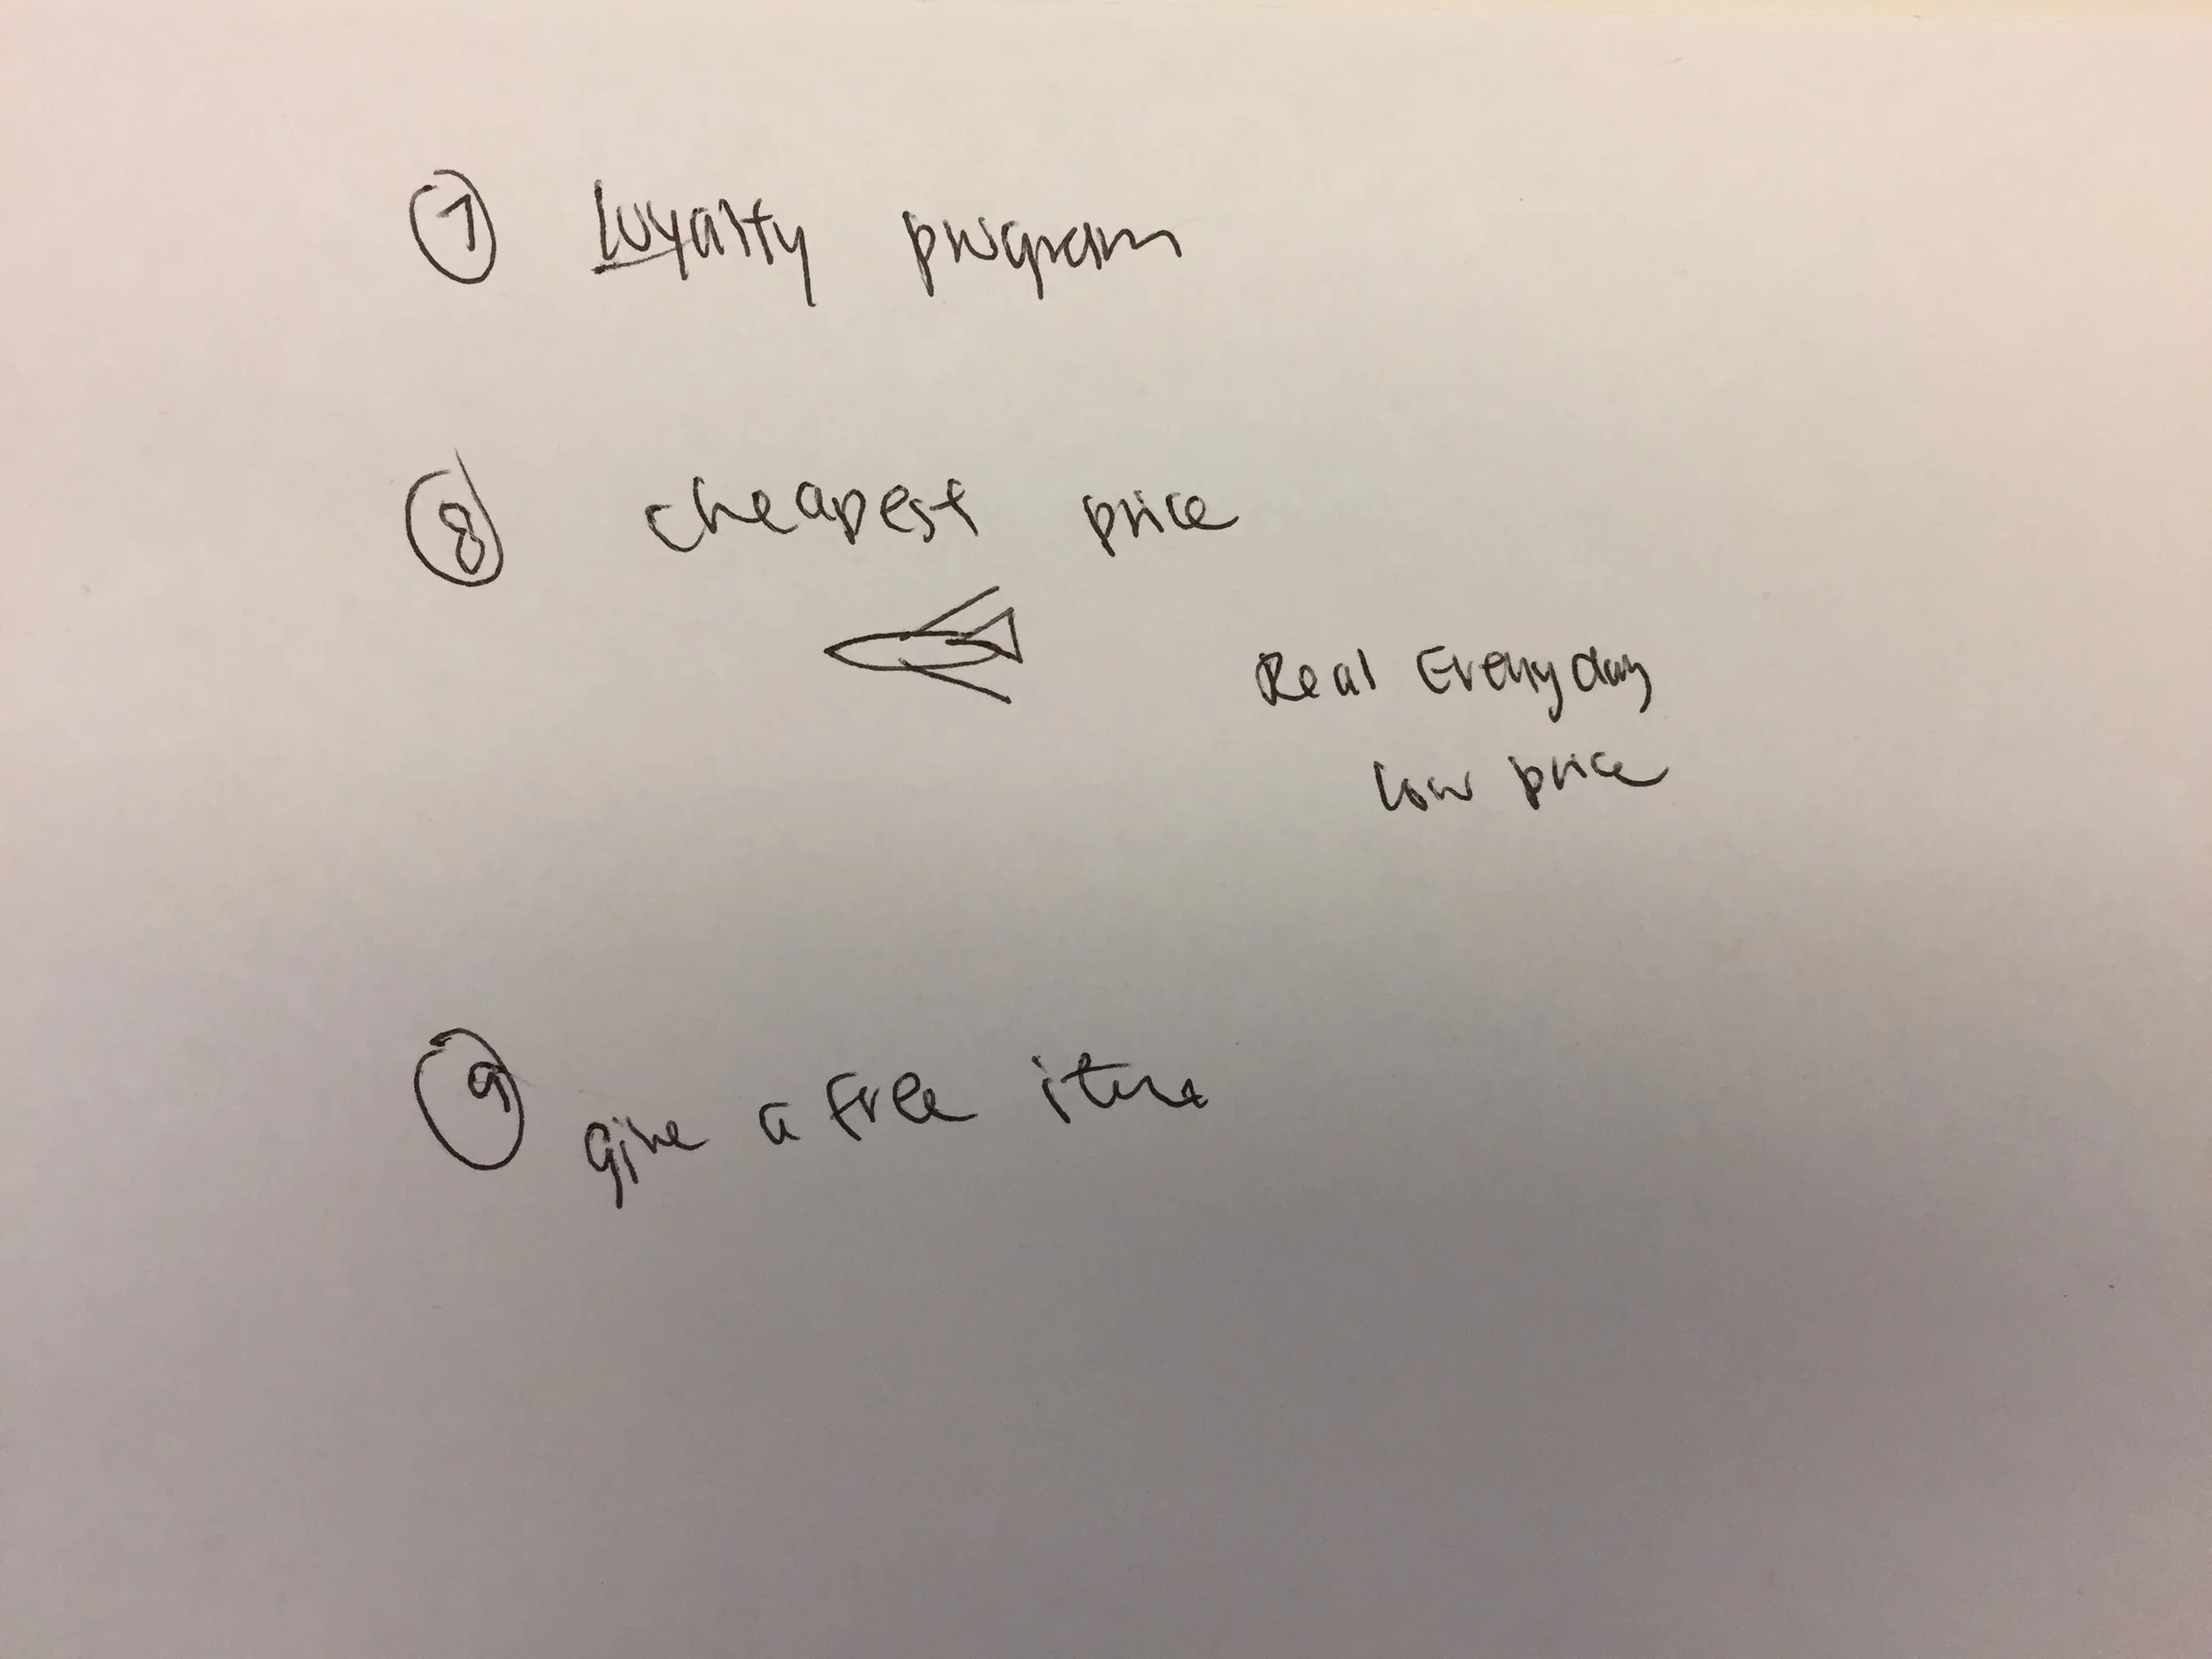 7 Loyalty program
8 cheapest price
Real Everyday
low price
9 give a free item